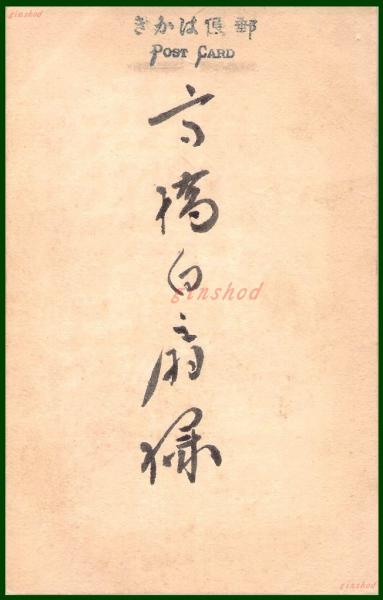 ginshod
きかは便郵
POST CARD
高橋白扇様
ginshod
ginshod